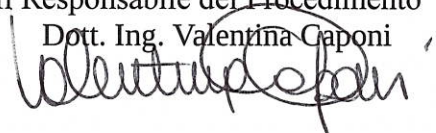 Il Responsabile del Procedimento
Dott. Ing. Valentina Caponi
Valentina Caponi